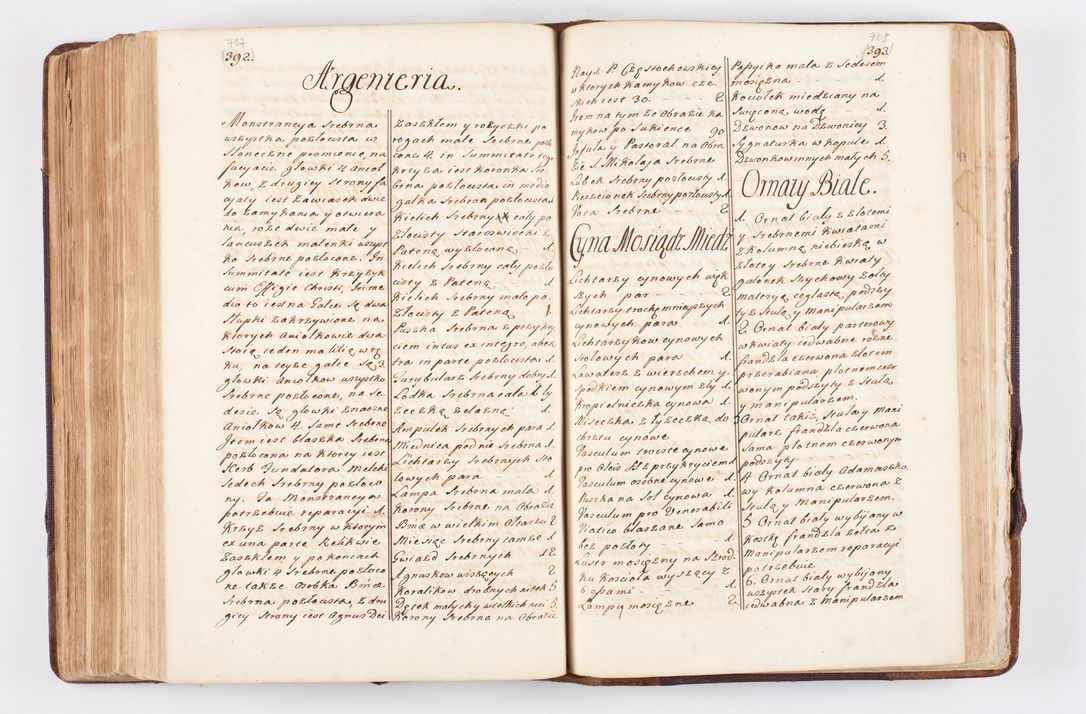 707
(392)
Argenteria.
Monstrancya srebrna
wszystka pozłocista w
słoneczne promienie, na
facyacie głowki 4 anioł
kow, z drugiey strony fa
cyaty iest zawiasek dwie
do zamykania y otwiera
nia, roże dwie małe y
łancuszek malenki wszyst
ko srebrne pozłocone. In
Summitate iest krzyżyk
cum Effigie Christi, in me
dio to iest na Gałce są dwa
słupki zakrzywione na
ktorych Aniołkowie dwa
stoią ieden ma lilią w rę
ku, na teyże gałce są 3.
głowki Aniołkow wszystko
srebrne pozłocone, na se
desie są głowki znaczne
Aniołkow 4. same srebrne
Item iest blaszka srebrna
pozłocona na ktorey iest
Herb Fundatora Melchi
sedech srebrny pozłoco
ny. Ta Monstrancya
potrzebuie reparacyi 1.
Krzyż srebrny w ktorym
ex una parte Relikwie
zaszkłem y po koncach
głowki 4 srebrne pozłoco
ne także Osobka Bmæ
srebrna pozłocista, z dru
giey strony iest Agnus Dei
zaszkłem y rożyczki po
rogach małe srebrne pozło
cone 4. in Summitate tego
krzyża iest koronka sre
brna pozłocista in medio
gałka srebrna pozłocista
Kielich srebrny cały po
złocisty staroswiecki z
Pateną wyzłoconą 1.
Kielich srebrny cały pozło
cisty z Pateną 1.
Kielich srebrny mało po
złocisty z Pateną 1.
Puszka srebrna z przykry
ciem intus ex integro, ab ex
tra in parte pozłocista 1.
Turybularz srebrny dobry 1.
Łodka srebrna cała z ły
żeczką żelazną 1.
Ampułek srebrnych para 1.
Miednica pod nie srebrna 1.
Lichtarzy srebrnych sto
łowych para 1.
Lampa srebrna mała 1.
Korony srebrne na Obrazie
Bmæ w wielkim Ołtarzu 2
Miesiąc srebrny tamże 1.
Gwiazd srebrnych 12
Agnuskow wiszących 2
Koralikow drobnych nitek 5
Dętek małych y wielkich nici 5.
Korony srebrne na Obrazie
708
(393)
Nays. P. Częstochowskiey
w ktorych kamykow cze
skich iest 30. 2
Item na tymże Obrazie ka
mykow po sukience 90
Infuła y Pastorał na Obra
zie S. Mikołaia srebrne
Kubek srebrny pozłocisty 1.
Pierscionek srebrny pozłocisty 1.
Wota srebrne 2
Cyna Mosiądz Miedz
Lichtarzy cynowych więk
szych par 2.
Lichtarzy trochę mnieyszych
cynowych para 1.
Lichtarzykow cynowych
stołowych para 1.
Lawaterz z wierzchem y
spodkiem cynowym zły 1.
Kropielniczka cynowa 1.
Miseczka z łyżeczką do
chrztu cynowe 1.
Vasculum troiste cynowe
pro Oleis SS. z przykryciem 1.
Vasculum osobne cynowe 1.
Puszka na sol cynowa 1.
Vasculum pro Venerabili
Viatico blaszane samo
bez pozłoty 1.
Lustr mosiężny na szrod
ku Kościoła wyszący z
6 essami 1.
Lampy mosiężne 2.
Passyika mała z sedesem
mosiężna 1.
Kociołek miedziany na
święconą wodę 1.
Dzwonow na Dzwonicy 3.
Sygnaturka w kopule 1.
Dzwonkow innych małych 5.
Ornaty Białe.
1. Ornat biały z złotemi
y srebrnemi kwiatami
z kolumną niebieską w
złotey srebrne kwiaty
galonek szychowy żołty
materyą ceglastą podszy
ty z stułą y manipularzem
2. Ornat biały parterowy
w kwiaty iedwabne rożne
frandzla czerwona złotem
przerabiana płotnem czer
wonym podszyty z stułą
y manipularzem.
3 Ornat takiż, stuła y mani
pularz frandzla czerwona
sama płotnem czerwonym
podszyty
4 Ornat biały Adamaszko
wy kolumna czerwona z
stułą y Manipularzem.
5 Ornat biały wybijany w
kostkę frandzla żołta z
Manipularzem reparacyi
potrzebuie
6. Ornat biały wybijany
wszystek stary frandzla
iedwabna z Manipularzem